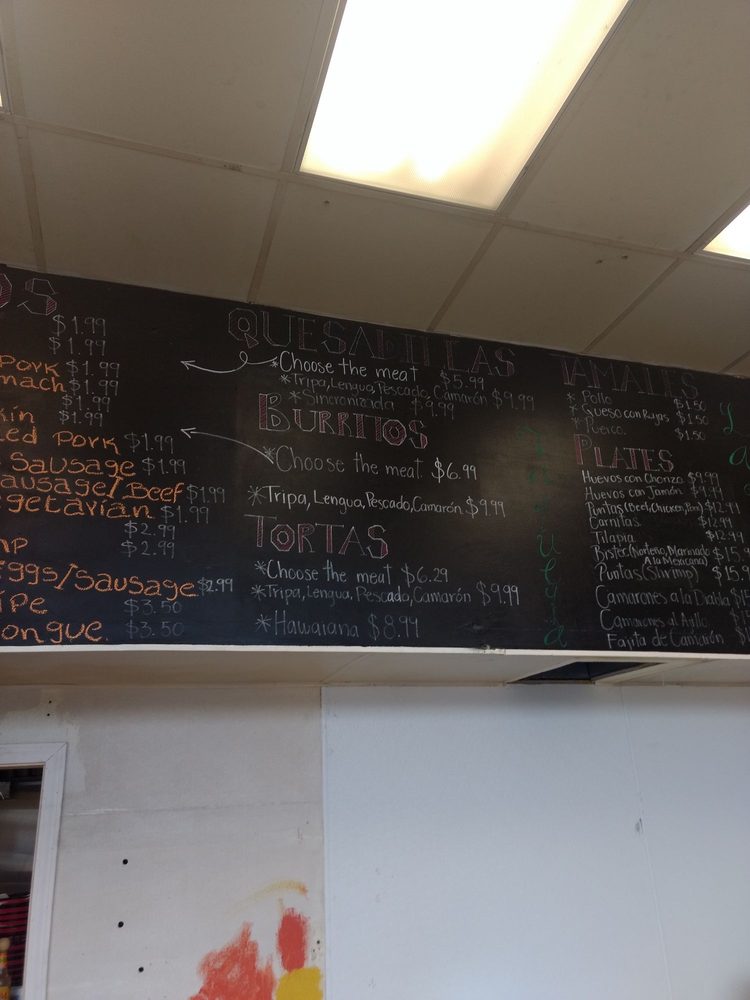 OS
$1.99
$1.99
Pork $1.99
mach $1.99
$1.99
kin $1.99
ed Pork $1.99
Sausage $1.99
ausage/Beef $1.99
egetarian $1.99
$2.99
mp $2.99
Eggs/Sausage $2.99
ipe $3.50
ongue $3.50
QUESADILLAS
*Choose the meat $5.99
*Tripa, Lengua, Pescado, Camarón $9.99
*Sincronizada $9.99
BURRITOS
*Choose the meat $6.99
*Tripa, Lengua, Pescado, Camarón $9.99
TORTAS
*Choose the meat $6.29
*Tripa, Lengua, Pescado, Camarón $9.99
*Hawaiana $8.99
TAMALES
* Pollo $1.50
* Queso con Rajas $1.50
* Puerco $1.50
PLATES
Huevos con Chorizo $9.99
Huevos con Jamón $9.99
Puntas (Beef, Chicken, $12.99
Carnitas $12.99
Tilapia $12.99
Bistec (Norteno, Marinado $15
A la Mexicana)
Puntas (Shrimp) $15.9
Camarones a la Diabla
Camarones al Ajillo
Fajita de Camarón